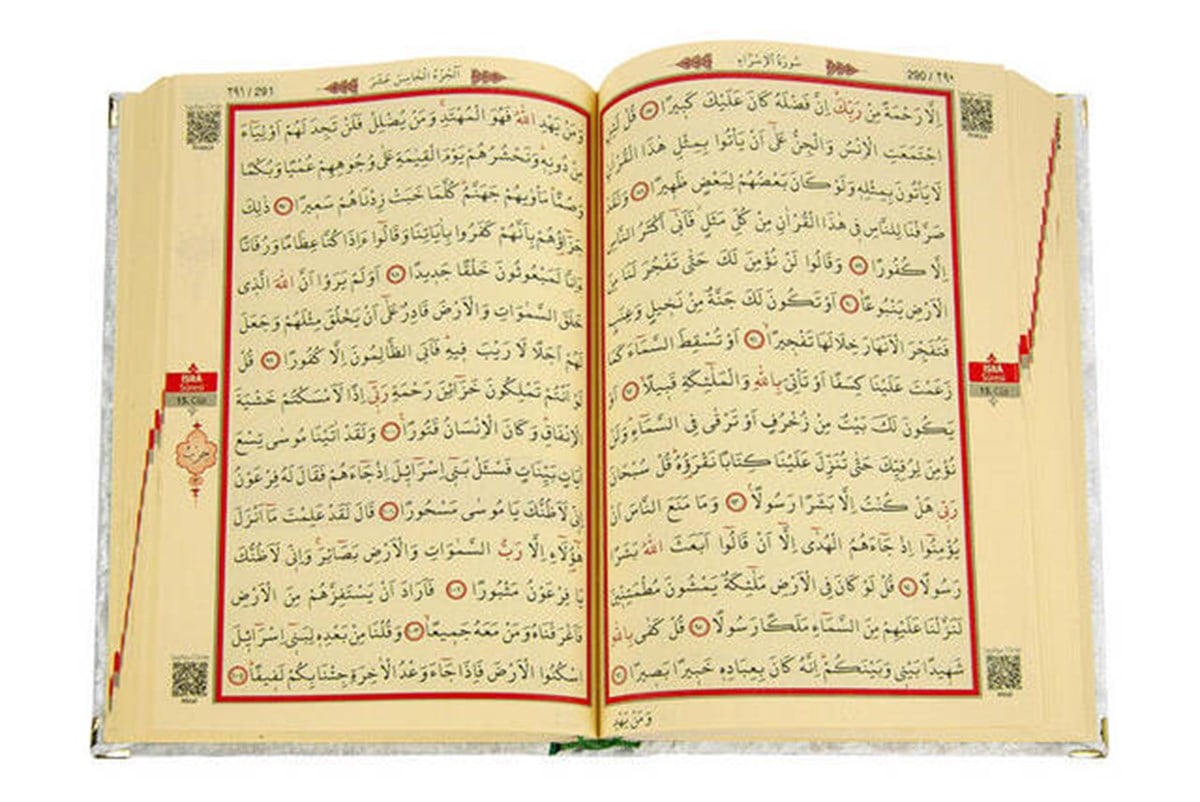 سُورَةُ الْاِسْرَاءِ
290 / ٢٩٠
اِلَّا رَحْمَةً مِنْ رَبِّكَ اِنَّ فَضْلَهُ كَانَ عَلَيْكَ كَبِيرًا ٨٧ قُلْ لَئِنِ
اجْتَمَعَتِ الْاِنْسُ وَالْجِنُّ عَلٰٓى اَنْ يَأْتُوا بِمِثْلِ هٰذَا الْقُرْاٰنِ
لَا يَأْتُونَ بِمِثْلِهِ وَلَوْ كَانَ بَعْضُهُمْ لِبَعْضٍ ظَهِيرًا ٨٨ وَلَقَدْ
صَرَّفْنَا لِلنَّاسِ فِى هٰذَا الْقُرْاٰنِ مِنْ كُلِّ مَثَلٍ فَاَبٰٓى اَكْثَرُ النَّاسِ
اِلَّا كُفُورًا ٨٩ وَقَالُوا لَنْ نُؤْمِنَ لَكَ حَتّٰى تَفْجُرَ لَنَا مِنَ
الْاَرْضِ يَنْبُوعًا ٩٠ اَوْ تَكُونَ لَكَ جَنَّةٌ مِنْ نَخِيلٍ وَعِنَبٍ
فَتُفَجِّرَ الْاَنْهَارَ خِلَالَهَا تَفْجِيرًا ٩١ اَوْ تُسْقِطَ السَّمَٓاءَ كَمَا
زَعَمْتَ عَلَيْنَا كِسَفًا اَوْ تَأْتِىَ بِاللّٰهِ وَالْمَلٰٓئِكَةِ قَبِيلًا ٩٢ اَوْ
يَكُونَ لَكَ بَيْتٌ مِنْ زُخْرُفٍ اَوْ تَرْقٰى فِى السَّمَٓاءِ وَلَنْ
نُؤْمِنَ لِرُقِيِّكَ حَتّٰى تُنَزِّلَ عَلَيْنَا كِتَابًا نَقْرَؤُهُ قُلْ سُبْحَانَ
رَبِّى هَلْ كُنْتُ اِلَّا بَشَرًا رَسُولًا ٩٣ وَمَا مَنَعَ النَّاسَ اَنْ
يُؤْمِنُٓوا اِذْ جَٓاءَهُمُ الْهُدٰٓى اِلَّٓا اَنْ قَالُٓوا اَبَعَثَ اللّٰهُ بَشَرًا
رَسُولًا ٩٤ قُلْ لَوْ كَانَ فِى الْاَرْضِ مَلٰٓئِكَةٌ يَمْشُونَ مُطْمَئِنِّينَ
لَنَزَّلْنَا عَلَيْهِمْ مِنَ السَّمَٓاءِ مَلَكًا رَسُولًا ٩٥ قُلْ كَفٰى بِاللّٰهِ
شَهِيدًا بَيْنِى وَبَيْنَكُمْ اِنَّهُ كَانَ بِعِبَادِهِ خَبِيرًا بَصِيرًا ٩٦
وَمَنْ يَهْدِ
ISRA
Sûresi
15. Cüz
اَلْجُزْءُ الْخَامِسَ عَشَرَ
٢٩١ / 291
وَمَنْ يَهْدِ اللّٰهُ فَهُوَ الْمُهْتَدِ وَمَنْ يُضْلِلْ فَلَنْ تَجِدَ لَهُمْ اَوْلِيَٓاءَ
مِنْ دُونِهِ وَنَحْشُرُهُمْ يَوْمَ الْقِيٰمَةِ عَلٰى وُجُوهِهِمْ عُمْيًا وَبُكْمًا
وَصُمًّا مَأْوٰيهُمْ جَهَنَّمُ كُلَّمَا خَبَتْ زِدْنَاهُمْ سَعِيرًا ٩٧ ذٰلِكَ
جَزَٓاؤُهُمْ بِاَنَّهُمْ كَفَرُوا بِاٰيَاتِنَا وَقَالُٓوا ءَاِذَا كُنَّا عِظَامًا وَرُفَاتًا
ءَاِنَّا لَمَبْعُوثُونَ خَلْقًا جَدِيدًا ٩٨ اَوَلَمْ يَرَوْا اَنَّ اللّٰهَ الَّذِى
خَلَقَ السَّمٰوَاتِ وَالْاَرْضَ قَادِرٌ عَلٰٓى اَنْ يَخْلُقَ مِثْلَهُمْ وَجَعَلَ
لَهُمْ اَجَلًا لَا رَيْبَ فِيهِ فَاَبَى الظَّالِمُونَ اِلَّا كُفُورًا ٩٩ قُلْ
لَوْ اَنْتُمْ تَمْلِكُونَ خَزَٓائِنَ رَحْمَةِ رَبِّٓى اِذًا لَاَمْسَكْتُمْ خَشْيَةَ
الْاِنْفَاقِ وَكَانَ الْاِنْسَانُ قَتُورًا ١٠٠ وَلَقَدْ اٰتَيْنَا مُوسٰى تِسْعَ
اٰيَاتٍ بَيِّنَاتٍ فَسْـَٔلْ بَنِٓى اِسْرَٓائِلَ اِذْ جَٓاءَهُمْ فَقَالَ لَهُ فِرْعَوْنُ
اِنِّى لَاَظُنُّكَ يَا مُوسٰى مَسْحُورًا ١٠١ قَالَ لَقَدْ عَلِمْتَ مَٓا اَنْزَلَ
هٰٓؤُلَٓاءِ اِلَّا رَبُّ السَّمٰوَاتِ وَالْاَرْضِ بَصَٓائِرَ وَاِنِّى لَاَظُنُّكَ
يَا فِرْعَوْنُ مَثْبُورًا ١٠٢ فَاَرَادَ اَنْ يَسْتَفِزَّهُمْ مِنَ الْاَرْضِ
فَاَغْرَقْنَاهُ وَمَنْ مَعَهُ جَمِيعًا ١٠٣ وَقُلْنَا مِنْ بَعْدِهِ لِبَنِٓى اِسْرَٓائِلَ
اسْكُنُوا الْاَرْضَ فَاِذَا جَٓاءَ وَعْدُ الْاٰخِرَةِ جِئْنَا بِكُمْ لَفِيفًا ١٠٤
ISRA
Sûresi
15. Cüz
حزب